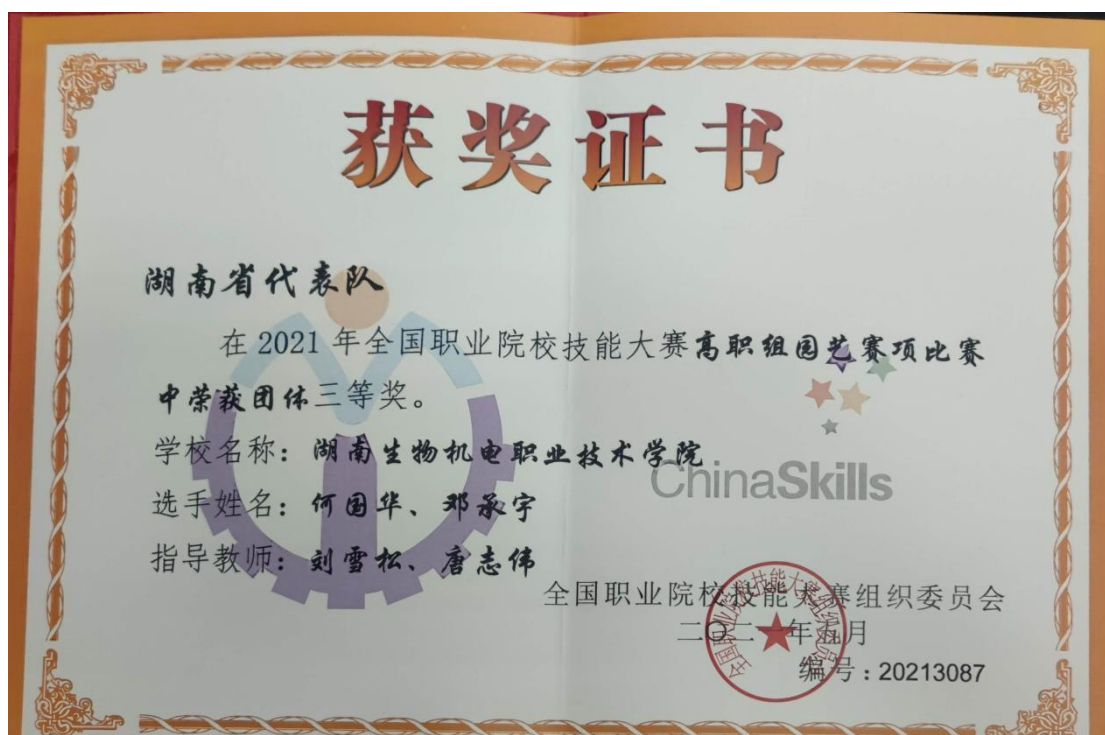 获奖证书
湖南省代表队
在 2021 年全国职业院校技能大赛高职组园艺赛项比赛
中荣获团体三等奖。
学校名称：湖南生物机电职业技术学院
ChinaSkills
选手姓名：何国华、邓承宇
指导教师：刘雪松、唐志伟
全国职业院校技能大赛组织委员会
二〇二一年七月
全国职业院校技能大赛组织委员会
编号：20213087